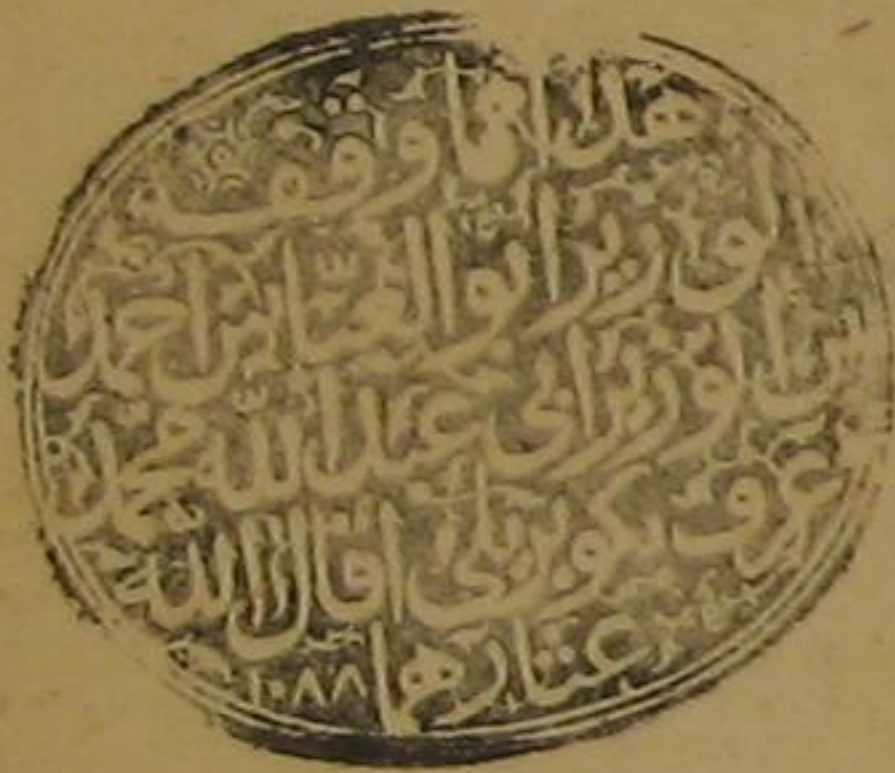 هذا مما وقفه
الوزير ابو العباس احمد
بن الوزير ابي عبد الله محمد
عرف بكوبريلي اقال الله
عثارها
١٠٨٨